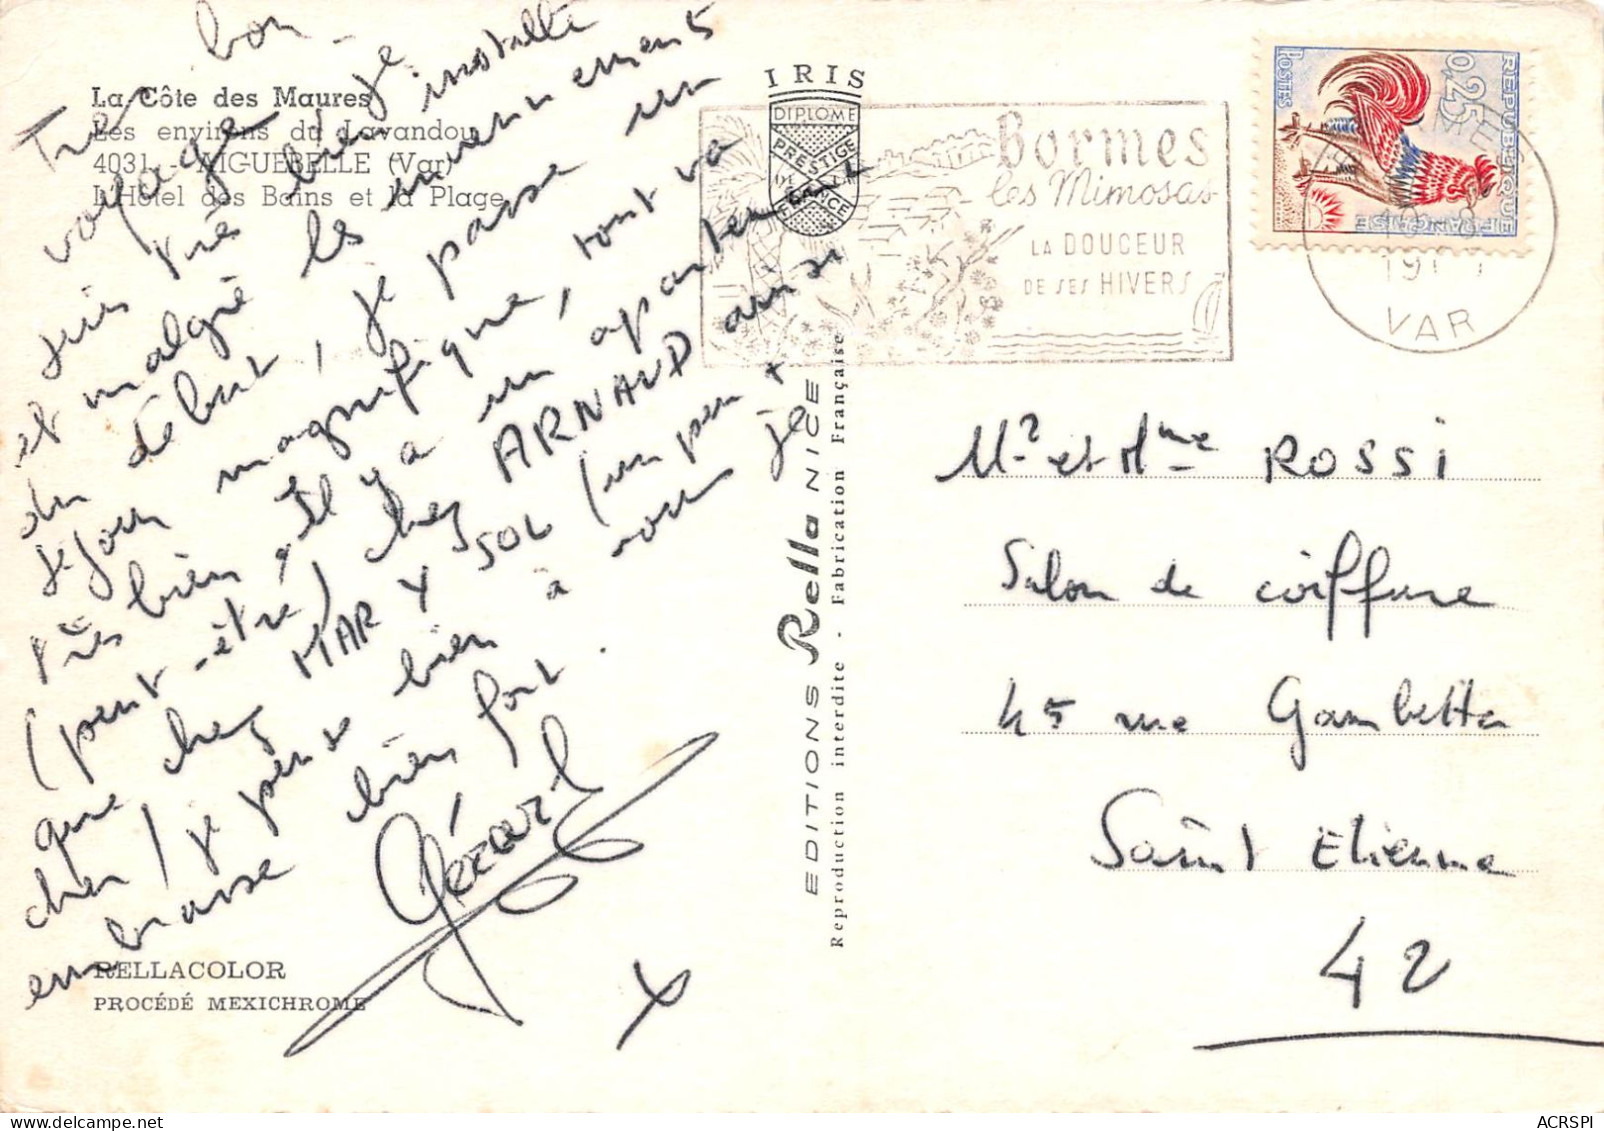 La Côte des Maures
Les environs du Lavandou
4031. - AIGUEBELLE (Var)
L'Hôtel des Bains et la Plage
Très bon
voyage, je
suis très bien installé
et malgré les
du début, je passe un
séjour magnifique, tout va
très bien. Il y a un appartement
(peut-être) chez ARNAUD ainsi
que chez MAR Y SOL (un peu +
cher) je pense bien à vous je
embrasse bien fort.
Gérard
X
RELLACOLOR
PROCÉDÉ MEXICHROME
IRIS
DIPLOME
PRESTIGE
DE LA
FRANCE
EDITIONS Rella NICE
Reproduction interdite - Fabrication Française
Bormes
les Mimosas
LA DOUCEUR
DE SES HIVERS
REPUBLIQUE
FRANÇAISE
0,25
POSTES
19
VAR
Mr et Mme ROSSI
Salon de coiffure
45 rue Gambetta
Saint Etienne
42
ACRSPI